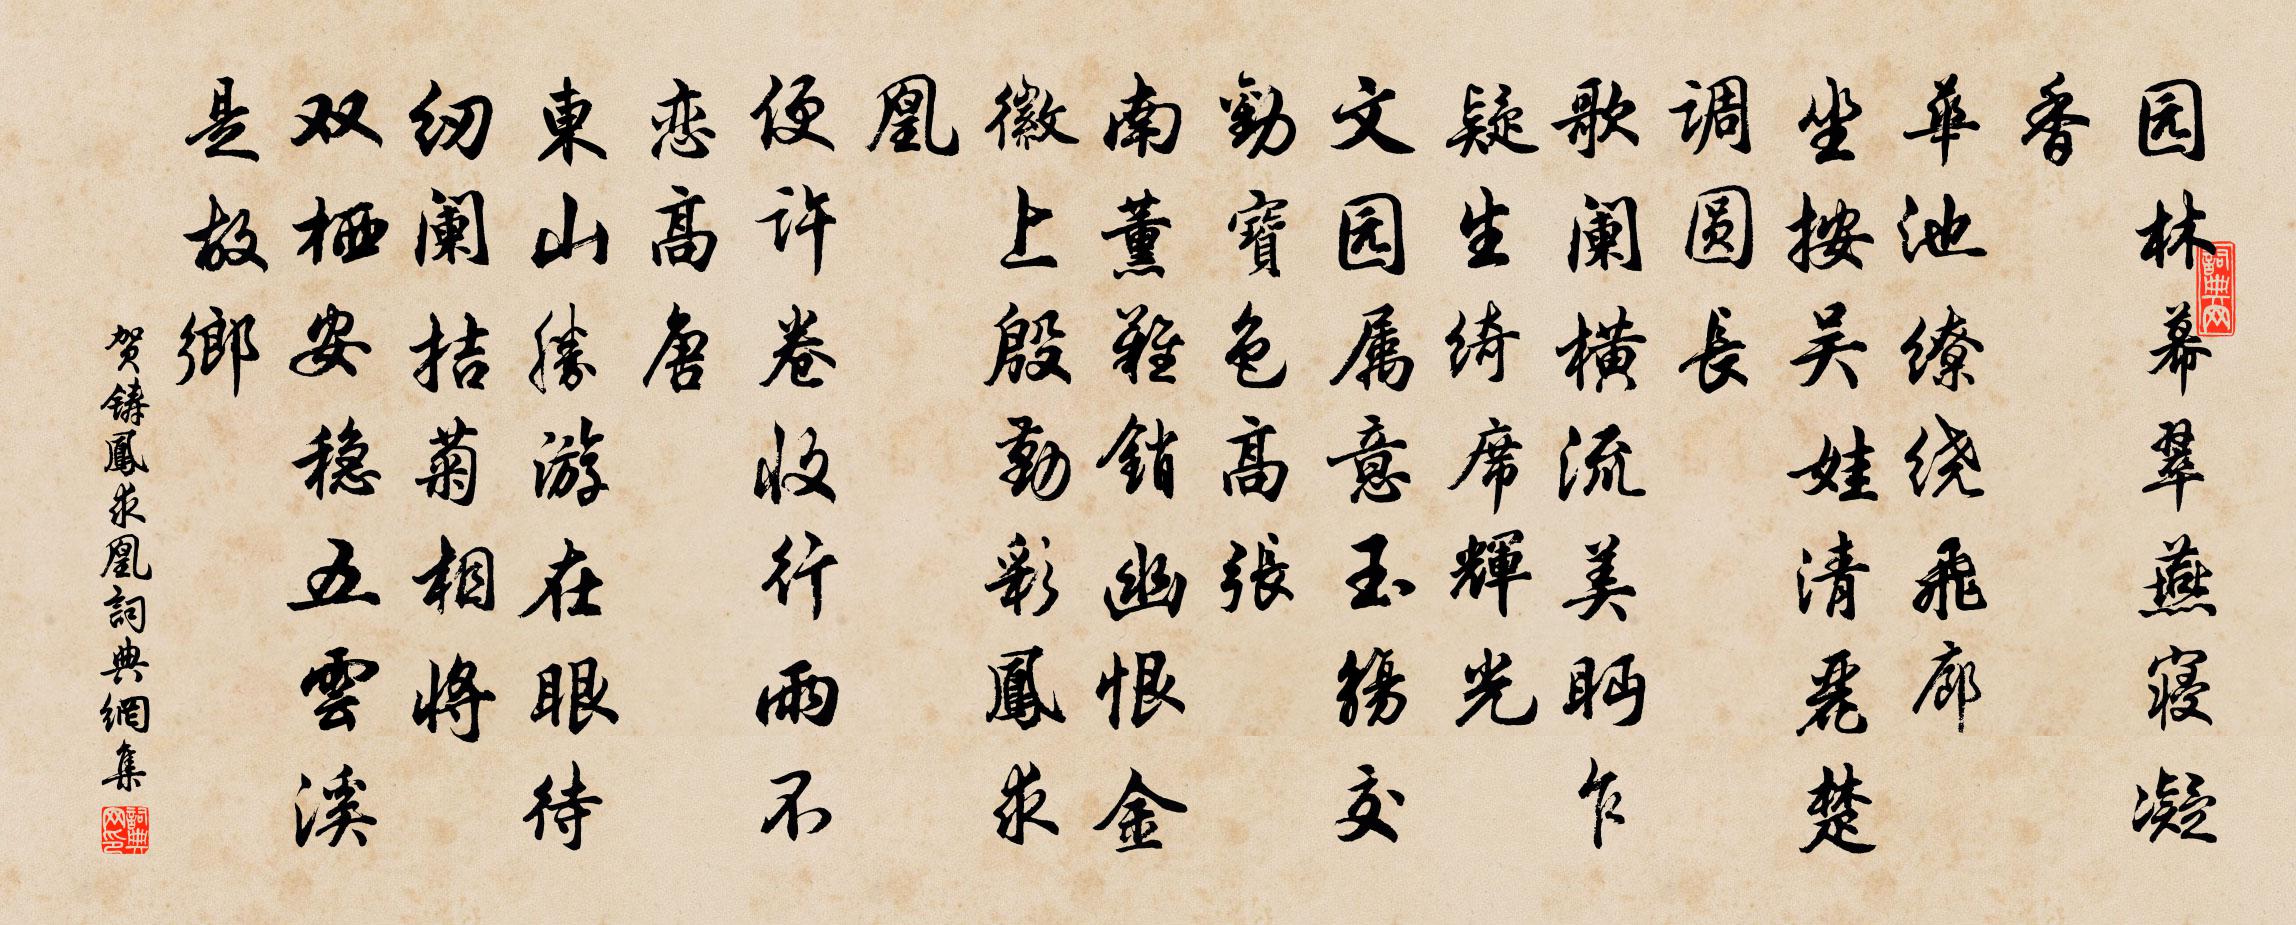 园林幕翠燕寝凝
香
华池缭绕飛廊
坐按吴娃清丽楚
调圆長
歌阑横流美眄乍
疑生绮席輝光
文园属意玉觞交
勸寶瑟高張
南薰難銷幽恨金
徽上殷勤彩鳳求
凰
便许卷收行雨不
恋高唐
東山勝游在眼待
纫阑拮菊相将
双栖安稳五雲溪
是故鄉
贺铸鳳求凰詞典網集
詞典网
詞典网印